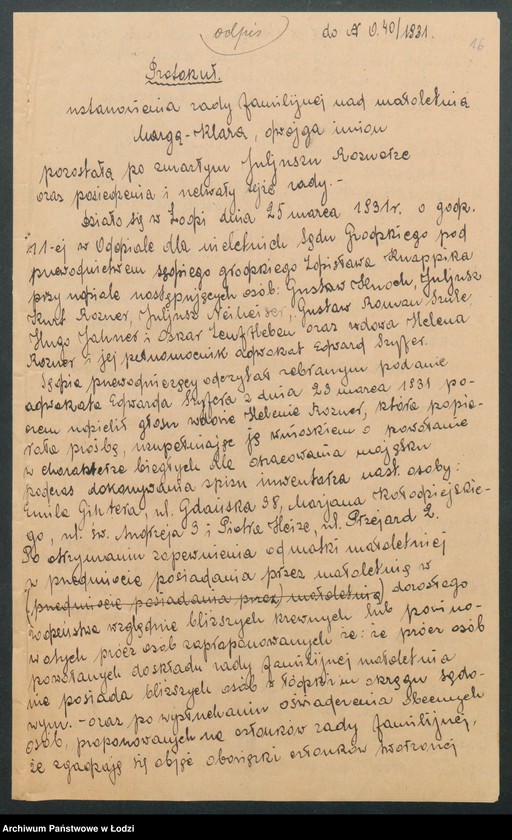 odpis
do № O.40/1931.
16
Protokuł.
ustanowienia rady familijnej nad małoletnią
Margą-Klarą, dwojga imion
pozostałą po zmarłym Juljuszu Roznerze
oraz posiedzenia i uchwały tejże rady.-
Działo się w Łodzi dnia 25 marca 1931r. o godz.
11-ej w Oddziale dla nieletnich Sądu Grodzkiego pod
przewodnictwem sędziego grodzkiego Zdzisława Knappika
przy udziale następujących osób: Gustaw Knoch, Juljusz
Kurt Rozner, Juljusz Neiheiser, Gustaw Roman Szulc,
Hugo Jahner i Oskar oraz wdowa Helena
Rozner i jej pełnomocnik adwokat Edward Szyfer.
Sędzia przewodniczący odczytał zebranym podanie
adwokata Edwarda Szyfera z dnia 23 marca 1931 po-
czem udzielił głosu wdowie Helenie Rozner, która popie-
rała prośbę, uzupełniając ją wnioskiem o powołanie
w charakterze biegłych dla oszacowania majątku
podczas dokonywania spisu inwentarza nast. osoby:
Emila ul. Gdańska 38, Marjana Kołodziejskie-
go, ul. św. Andrzeja 3 i Piotra Heize, ul. Przejazd 2.
Po otrzymaniu zapewnienia od matki małoletniej
w przedmiocie posiadania przez małoletnią w
(przedmiocie posiadania przez małoletnią) dorosłego
rodzeństwa względnie bliższych krewnych lub powino-
watych prócz osób zaproponowanych że: że prócz osób
powołanych do składu rady familijnej małoletnia
nie posiada bliższych osób w łódzkim okręgu sądo-
wym.- oraz po wysłuchaniu oświadczenia obecnych
osób, proponowanych na członków rady familijnej,
że zgadzają się objąć obowiązki członków tworzonej
Archiwum Państwowe w Łodzi